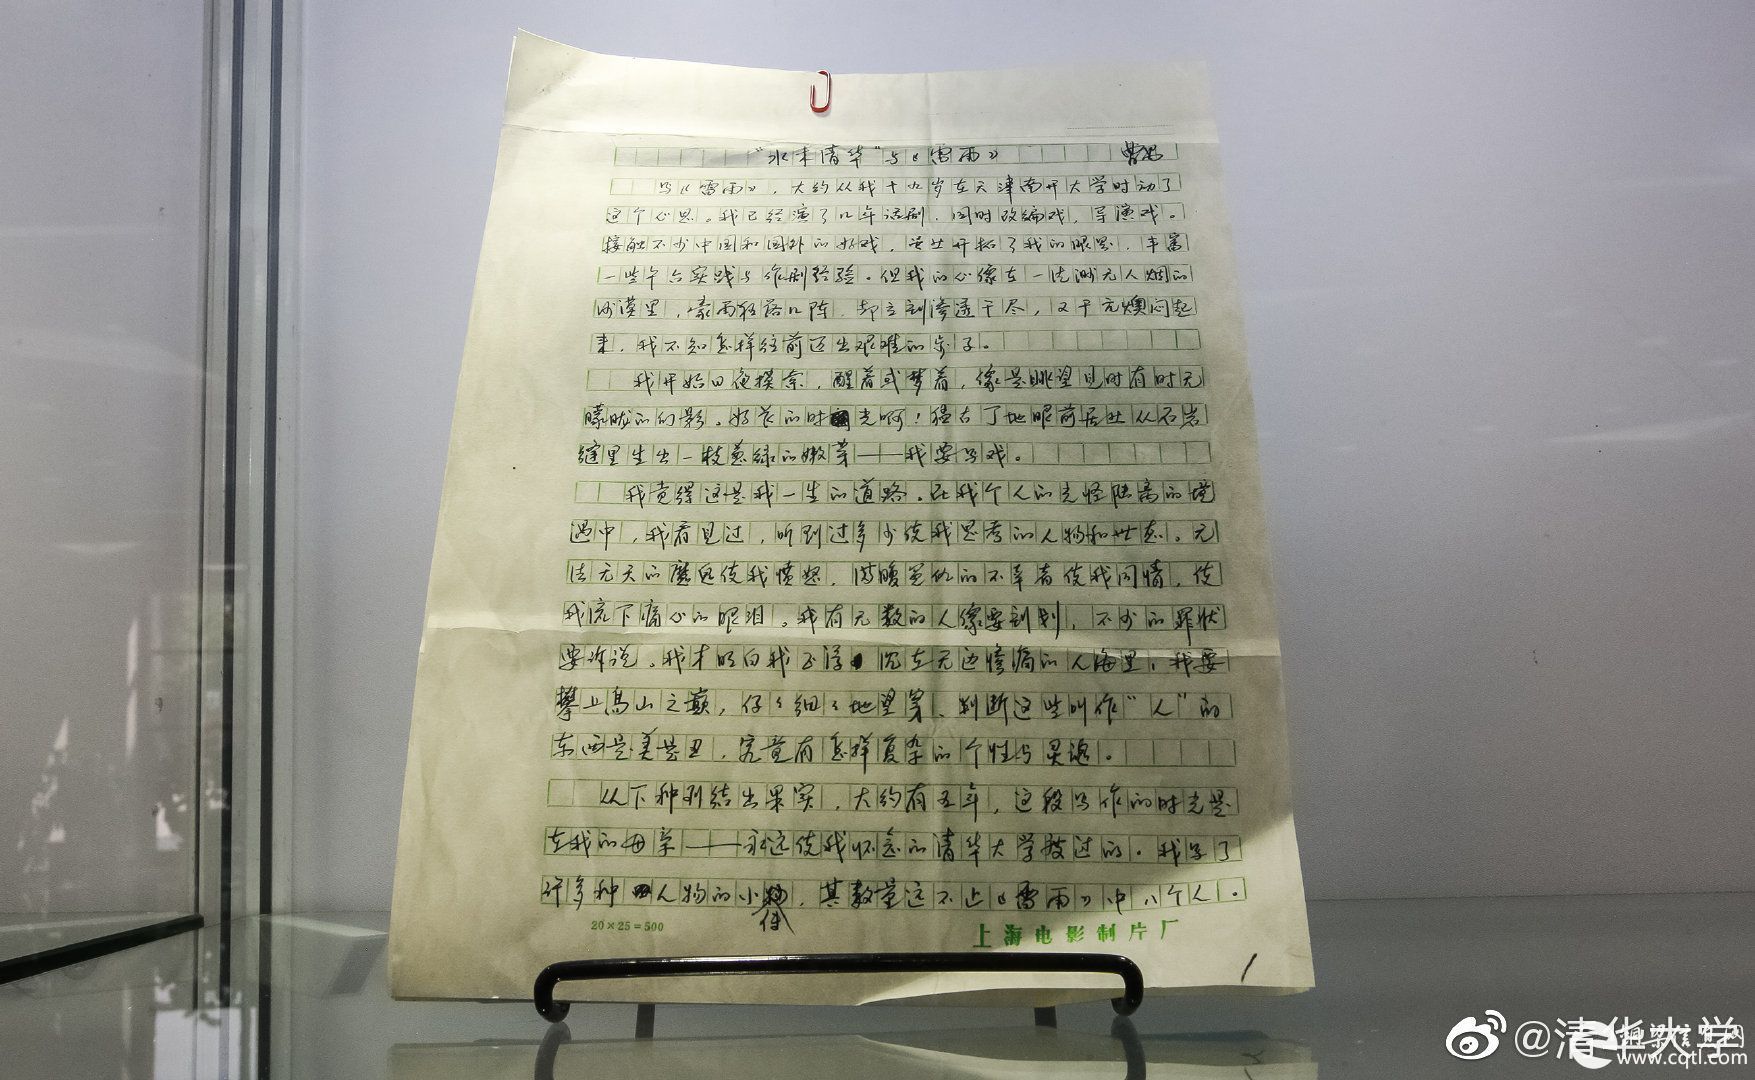 “水木清华”与《雷雨》 曹禺
写《雷雨》，大约从我十九岁在天津南开大学时动了
这个心思。我已经演了几年话剧，同时改编戏，导演戏。
接触不少中国和国外的好戏，虽然开拓了我的眼界，丰富
一些舞台实践与作剧经验。但我的心像在一片渺无人烟的
沙漠里，豪雨狂落几阵，却立刻渗透干尽，又干亢燠闷起
来，我不知怎样往前迈出艰难的步子。
我开始日夜摸索，醒着或梦着，像是眺望见时有时无
朦胧的幻影。好长的时光啊！猛古丁地眼前居然从石岩
缝里生出一枝葱绿的嫩芽——我要写戏。
我觉得这是我一生的道路。在我个人的光怪陆离的境
遇中，我看见过，听到过多少使我思考的人物和世态。无
法无天的魔鬼使我愤怒，满腹冤仇的不幸者使我同情，使
我流下痛心的眼泪。我有无数的人像要刻划，不少的罪状
要诉说。我才明白我正浮沉在无边惨痛的人海里，我要
攀上高山之巅，仔仔细细地望穿、判断这些叫作“人”的
东西是美是丑，究竟有怎样复杂的个性与灵魂。
从下种到结出果实，大约有五年，这段写作的时光是
在我的母亲——永远使我怀念的清华大学度过的。我写了
许多种人物的小传，其数量远不止《雷雨》中八个人。
20×25=500
上海电影制片厂
1
@清华大学
www.cqtl.com